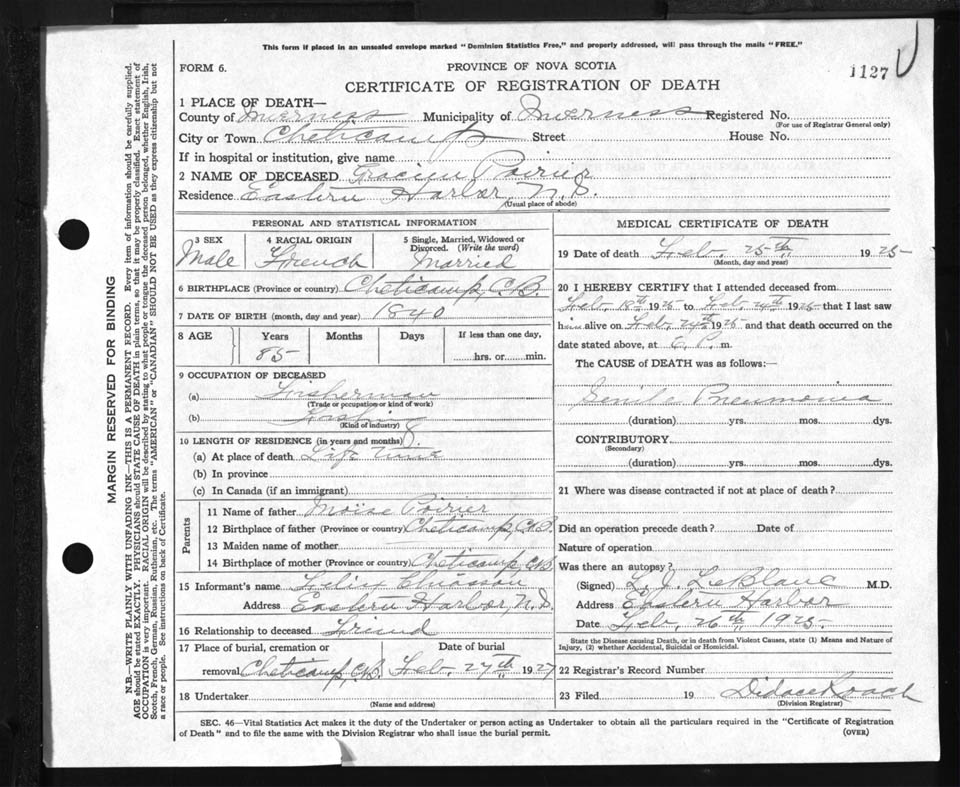 This form if placed in an unsealed envelope marked "Dominion Statistics Free," and properly addressed, will pass through the mails "FREE."
FORM 6.
PROVINCE OF NOVA SCOTIA
1127
CERTIFICATE OF REGISTRATION OF DEATH
MARGIN RESERVED FOR BINDING
N.B.—WRITE PLAINLY WITH UNFADING INK—THIS IS A PERMANENT RECORD. Every item of information should be carefully supplied.
AGE should be stated EXACTLY. PHYSICIANS should STATE CAUSE OF DEATH in plain terms, so that it may be properly classified. Exact statement of
OCCUPATION is very important. RACIAL ORIGIN will be described by stating to what people or tongue the deceased person belonged, whether English, Irish,
Scotch, French, German, Russian, Ruthenian, etc. The terms "AMERICAN" or "CANADIAN" SHOULD NOT BE USED as they express citizenship but not
a race or people. See instructions on back of Certificate.
1 PLACE OF DEATH—
County of Inverness Municipality of Inverness Registered No.
(For use of Registrar General only)
City or Town Cheticamp Street House No.
If in hospital or institution, give name
2 NAME OF DECEASED Poirier
Residence Eastern Harbor, N.S.
(Usual place of abode)
PERSONAL AND STATISTICAL INFORMATION
3 SEX 4 RACIAL ORIGIN 5 Single, Married, Widowed or
Divorced. (Write the word)
Male French Married
6 BIRTHPLACE (Province or country) Cheticamp, C.B.
7 DATE OF BIRTH (month, day and year) 1840
8 AGE Years Months Days If less than one day,
85 hrs. or min.
9 OCCUPATION OF DECEASED
(a) Fisherman
(Trade or occupation or kind of work)
(b)
(Kind of industry)
10 LENGTH OF RESIDENCE (in years and months)
(a) At place of death Life time
(b) In province
(c) In Canada (if an immigrant)
Parents
11 Name of father Moïse Poirier
12 Birthplace of father (Province or country) Cheticamp, C.B.
13 Maiden name of mother
14 Birthplace of mother (Province or country) Cheticamp, C.B.
15 Informant's name Felix Chiasson
Address Eastern Harbor, N.S.
16 Relationship to deceased Friend
17 Place of burial, cremation or Date of burial
removal Cheticamp, C.B. Feb. 27th 1927
18 Undertaker
(Name and address)
MEDICAL CERTIFICATE OF DEATH
19 Date of death Feb. 25th 1925
(Month, day and year)
20 I HEREBY CERTIFY that I attended deceased from
Feb. 18th 1925 to Feb. 24th 1925 that I last saw
him alive on Feb. 24th 1925 and that death occurred on the
date stated above, at P. m.
The CAUSE OF DEATH was as follows:
Senile Pneumonia
(duration) yrs. mos. dys.
CONTRIBUTORY
(Secondary)
(duration) yrs. mos. dys.
21 Where was disease contracted if not at place of death?
Did an operation precede death? Date of
Nature of operation
Was there an autopsy?
(Signed) L. J. LeBlanc M.D.
Address Eastern Harbor
Date Feb. 26th, 1925
State the Disease causing Death, or in death from Violent Causes, state (1) Means and Nature of
Injury, (2) whether Accidental, Suicidal or Homicidal.
22 Registrar's Record Number
23 Filed 19 Didace Roach
(Division Registrar)
SEC. 46—Vital Statistics Act makes it the duty of the Undertaker or person acting as Undertaker to obtain all the particulars required in the "Certificate of Registration
of Death" and to file the same with the Division Registrar who shall issue the burial permit.
(OVER)